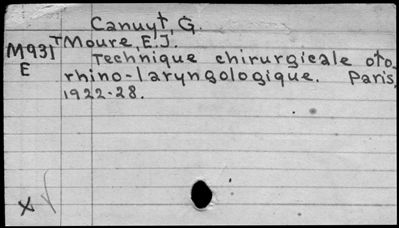 Canuyt, G.
TMoure, E.J.
M931 Technique chirurgicale oto-
E rhino-laryngologique. Paris,
1922-28.
X